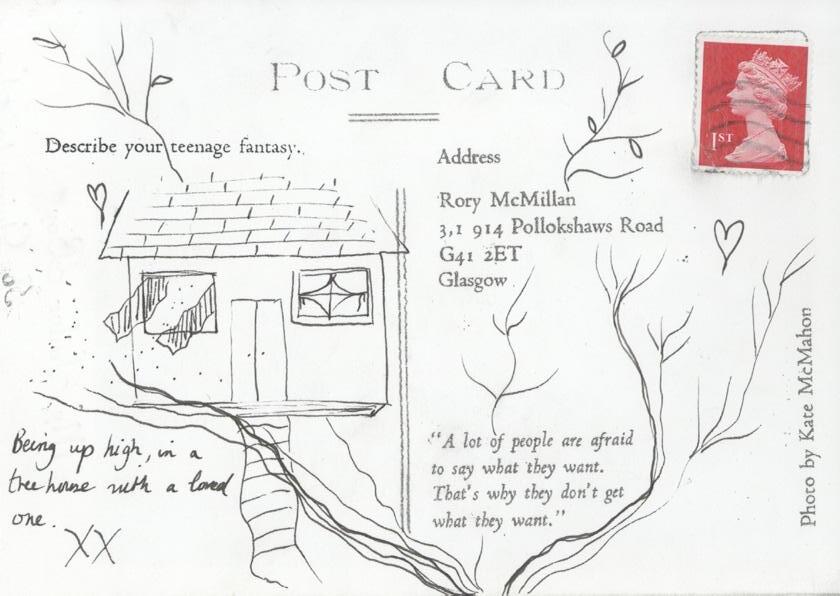 POST CARD
1ST
Describe your teenage fantasy.
Address
Rory McMillan
3,1 914 Pollokshaws Road
G41 2ET
Glasgow
"A lot of people are afraid
to say what they want.
That's why they don't get
what they want."
Being up high, in a
tree house with a loved
one.
XX
Photo by Kate McMahon